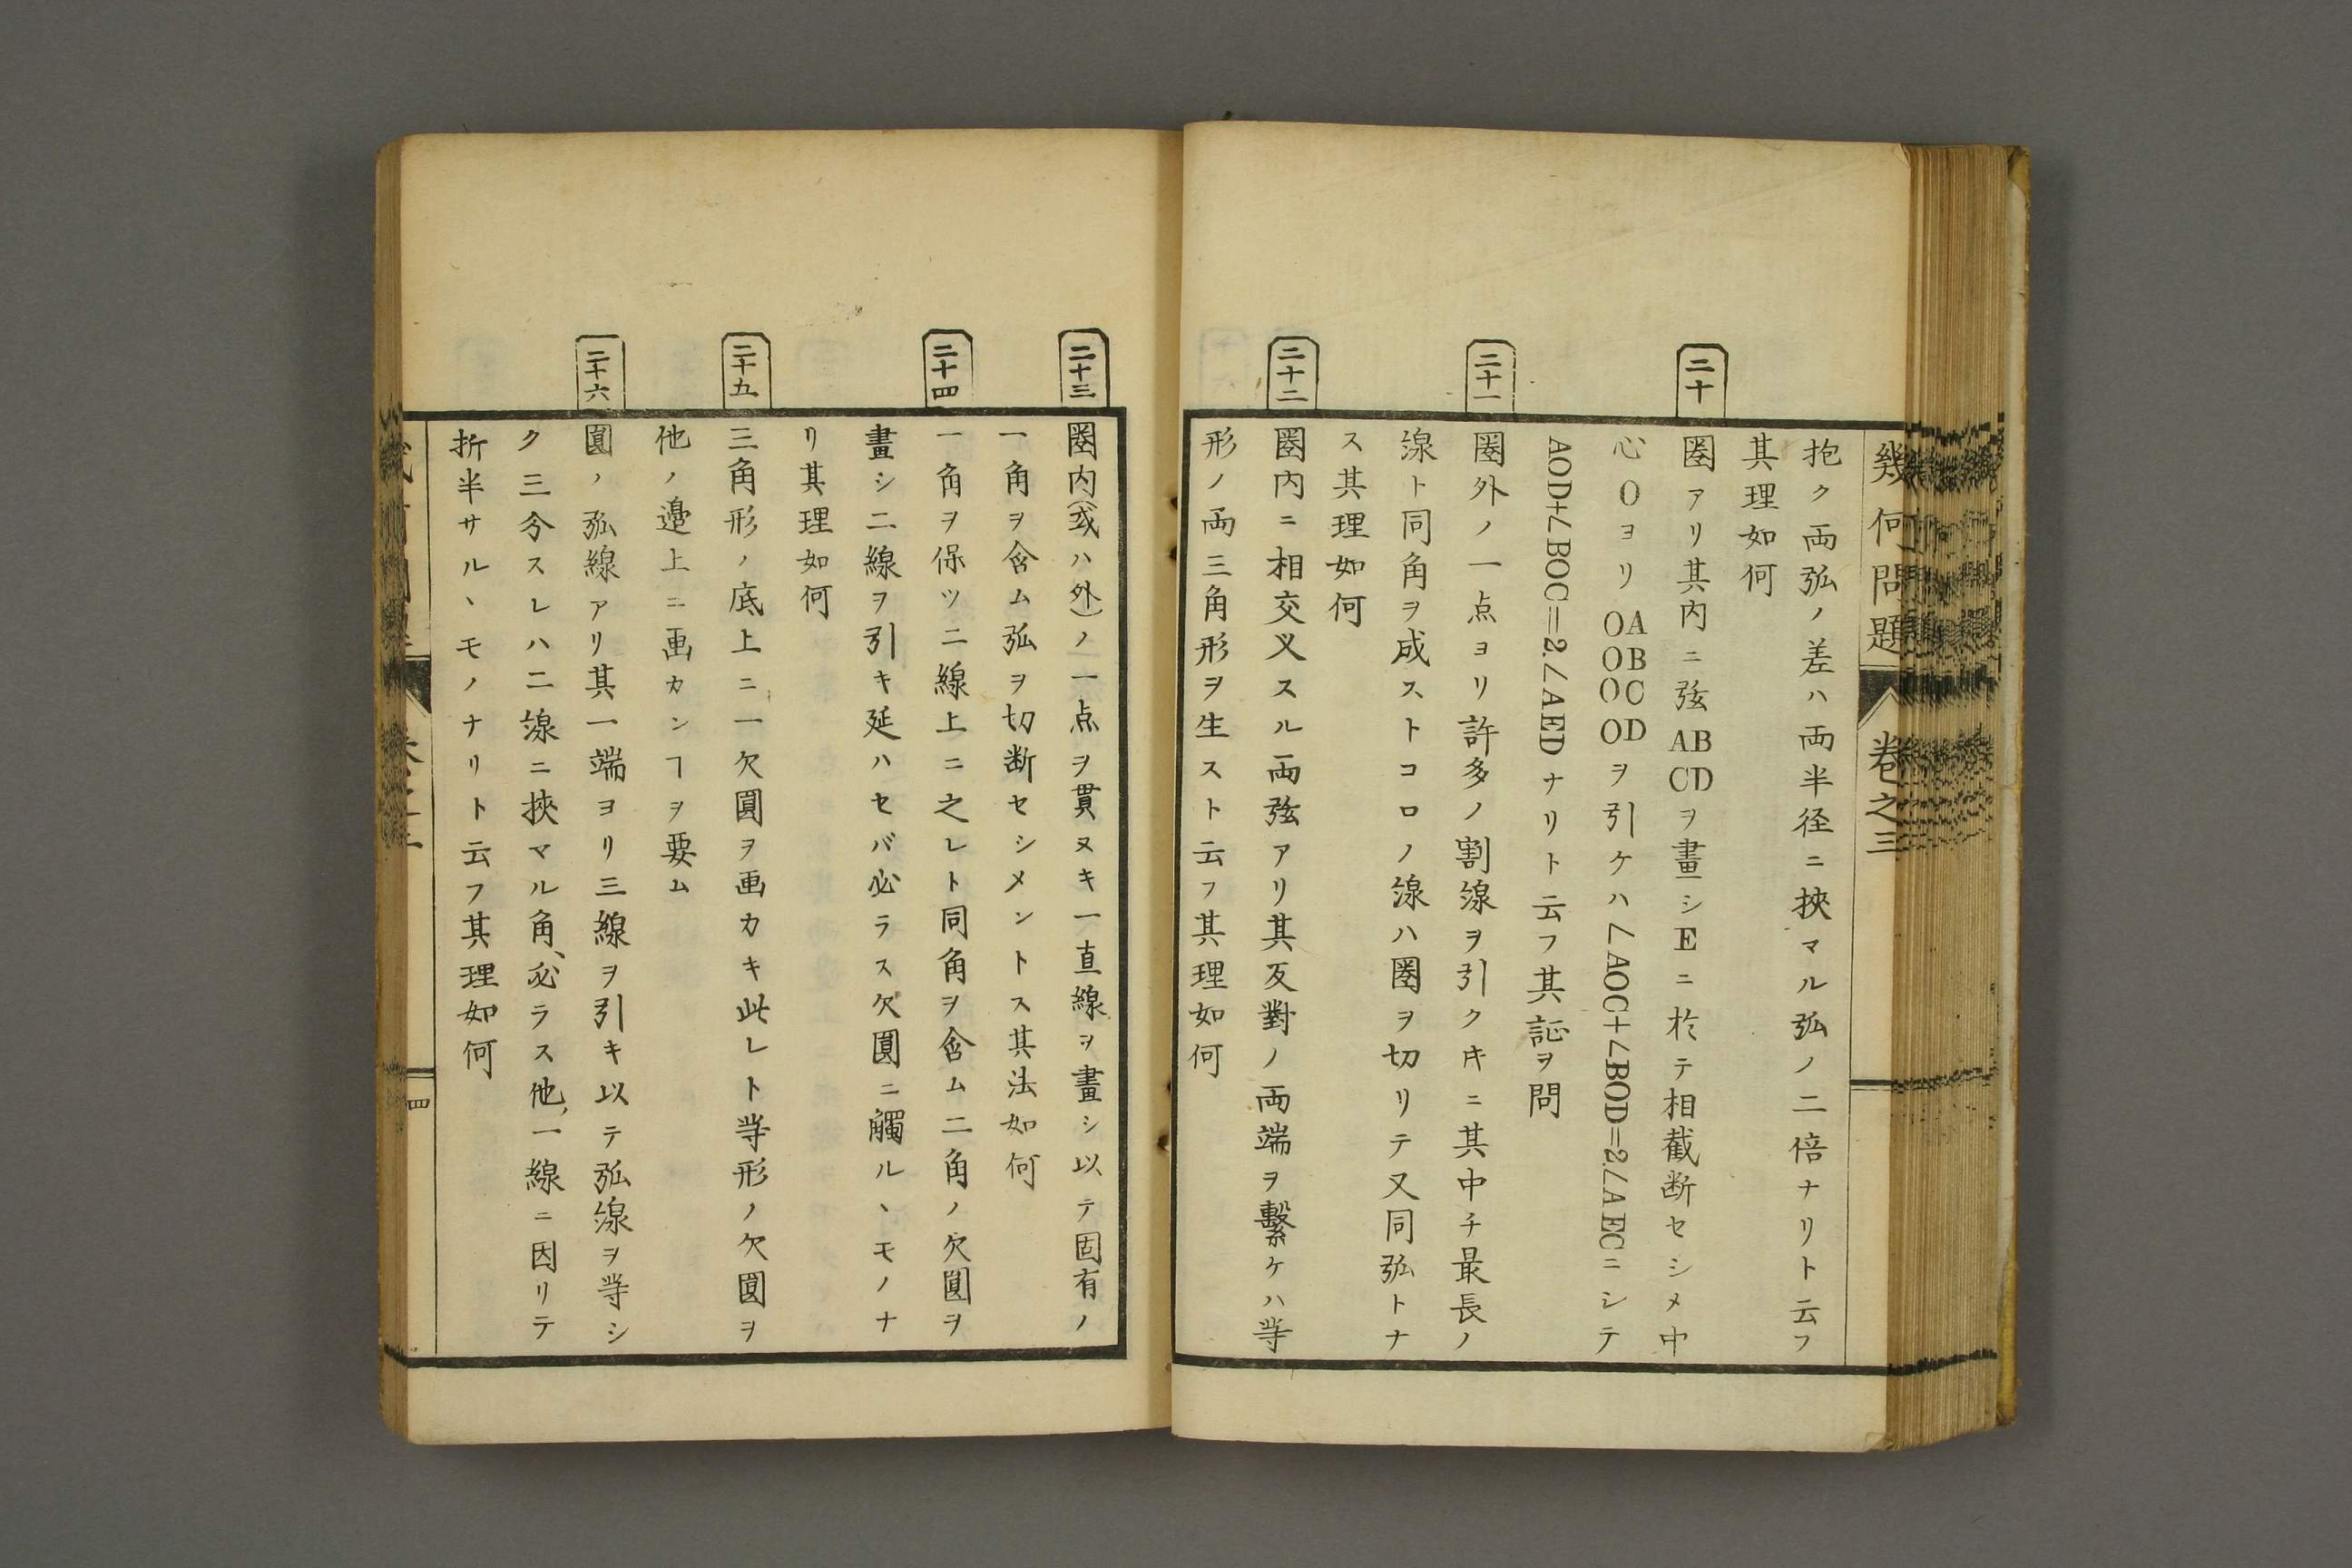 幾何問題
卷之三
抱ク両弧ノ差ハ両半径ニ挾マル弧ノ二倍ナリト云フ
其理如何
二十
圏アリ其内ニ弦ABCDヲ畫シEニ於テ相截断セシメ中
心OヨリOAOBOCODヲ引ケハ∠AOC+∠BOD=2.∠AECニシテ
AOD+∠BOC=2.∠AEDナリト云フ其証ヲ問
二十一
圏外ノ一点ヨリ許多ノ割線ヲ引クキニ其中チ最長ノ
線ト同角ヲ成ストコロノ線ハ圏ヲ切リテ又同弧トナ
ス其理如何
二十二
圏内ニ相交叉スル両弦アリ其反對ノ両端ヲ繫ケハ等
形ノ両三角形ヲ生スト云フ其理如何
二十三
圏内(或ハ外)ノ一点ヲ貫ヌキ一直線ヲ畫シ以テ固有ノ
一角ヲ含ム弧ヲ切断セシメントス其法如何
二十四
一角ヲ保ツ二線上ニ之レト同角ヲ含ム二角ノ欠圓ヲ
畫シ二線ヲ引キ延ハセバ必ラス欠圓ニ觸ルヽモノナ
リ其理如何
二十五
三角形ノ底上ニ一欠圓ヲ画カキ此レト等形ノ欠圓ヲ
他ノ邉上ニ画カンヿヲ要ム
二十六
圓ノ弧線アリ其一端ヨリ三線ヲ引キ以テ弧線ヲ等シ
ク三分スレハ二線ニ挾マル角、必ラス他、一線ニ因リテ
折半サルヽモノナリト云フ其理如何
四